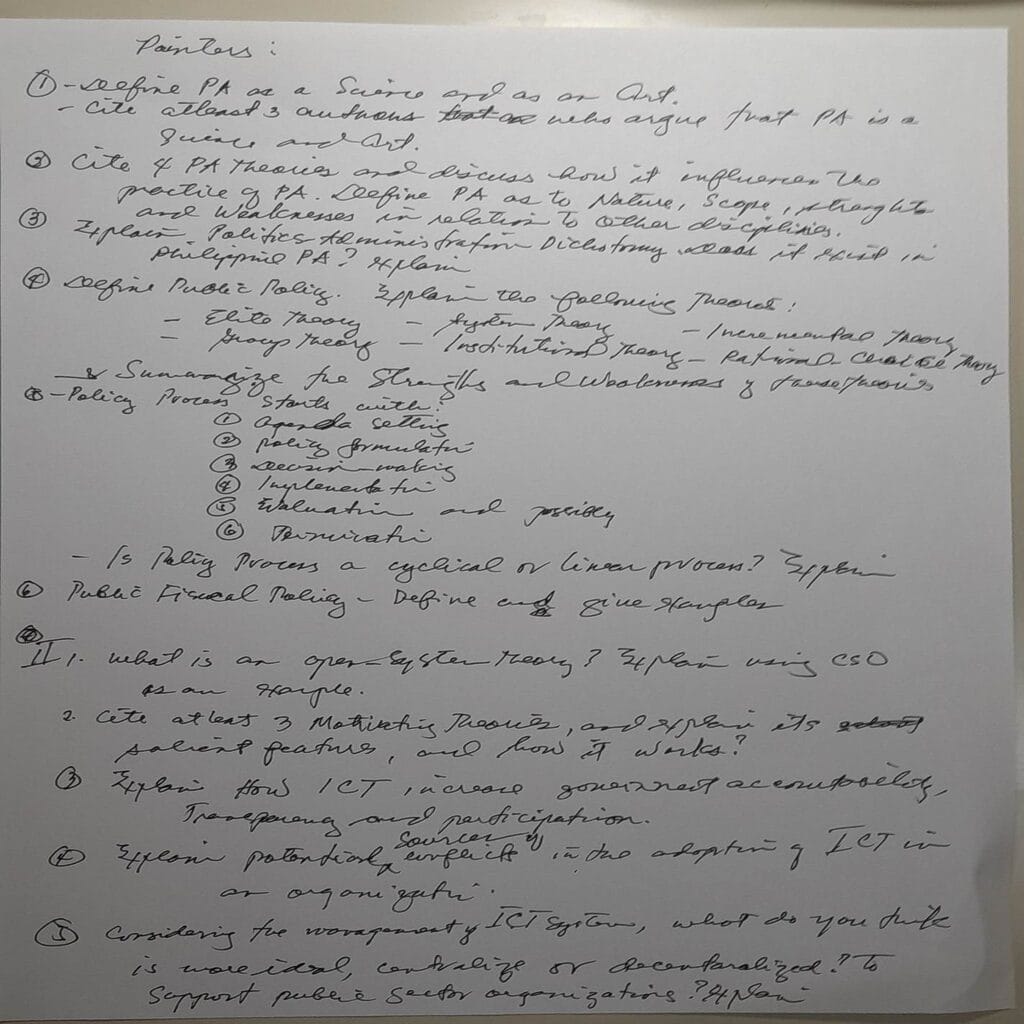 Pointers:
① - Define PA as a Science and as an Art.
- Cite atleast 3 authors who argue that PA is a
Science and Art.
② Cite 4 PA Theories and discuss how it influences the
practice of PA. Define PA as to Nature, Scope, strenghts
and Weaknesses in relation to other disciplines.
③ Explain Politics Administration Dichotomy does it exist in
Philippine PA? explain
④ Define Public Policy. Explain the following Theories:
- Elite Theory - System Theory - Incremental Theory
- Group Theory - Institutional Theory - Rational Choice Theory
- Summarize the Strengths and Weakness of these theories
⑤ - Policy Process starts with:
① agenda setting
② policy formulation
③ Decision-making
④ Implementation
⑤ Evaluation and possibly
⑥ Termination
- Is Policy Process a cyclical or linear process? Explain
⑥ Public Fiscal Policy - Define and give examples
II 1. What is an open-system theory? Explain using CSO
as an example.
2. Cite atleast 3 Motivating Theories, and explain its
salient features, and how it works?
③ Explain How ICT increase government accountability,
Transparency and participation.
④ Explain potential sources of conflicts in the adoption of ICT in
an organization.
⑤ Considering the management of ICT system, what do you think
is more ideal, centralize or decentralized? To
support public sector organizations? Explain